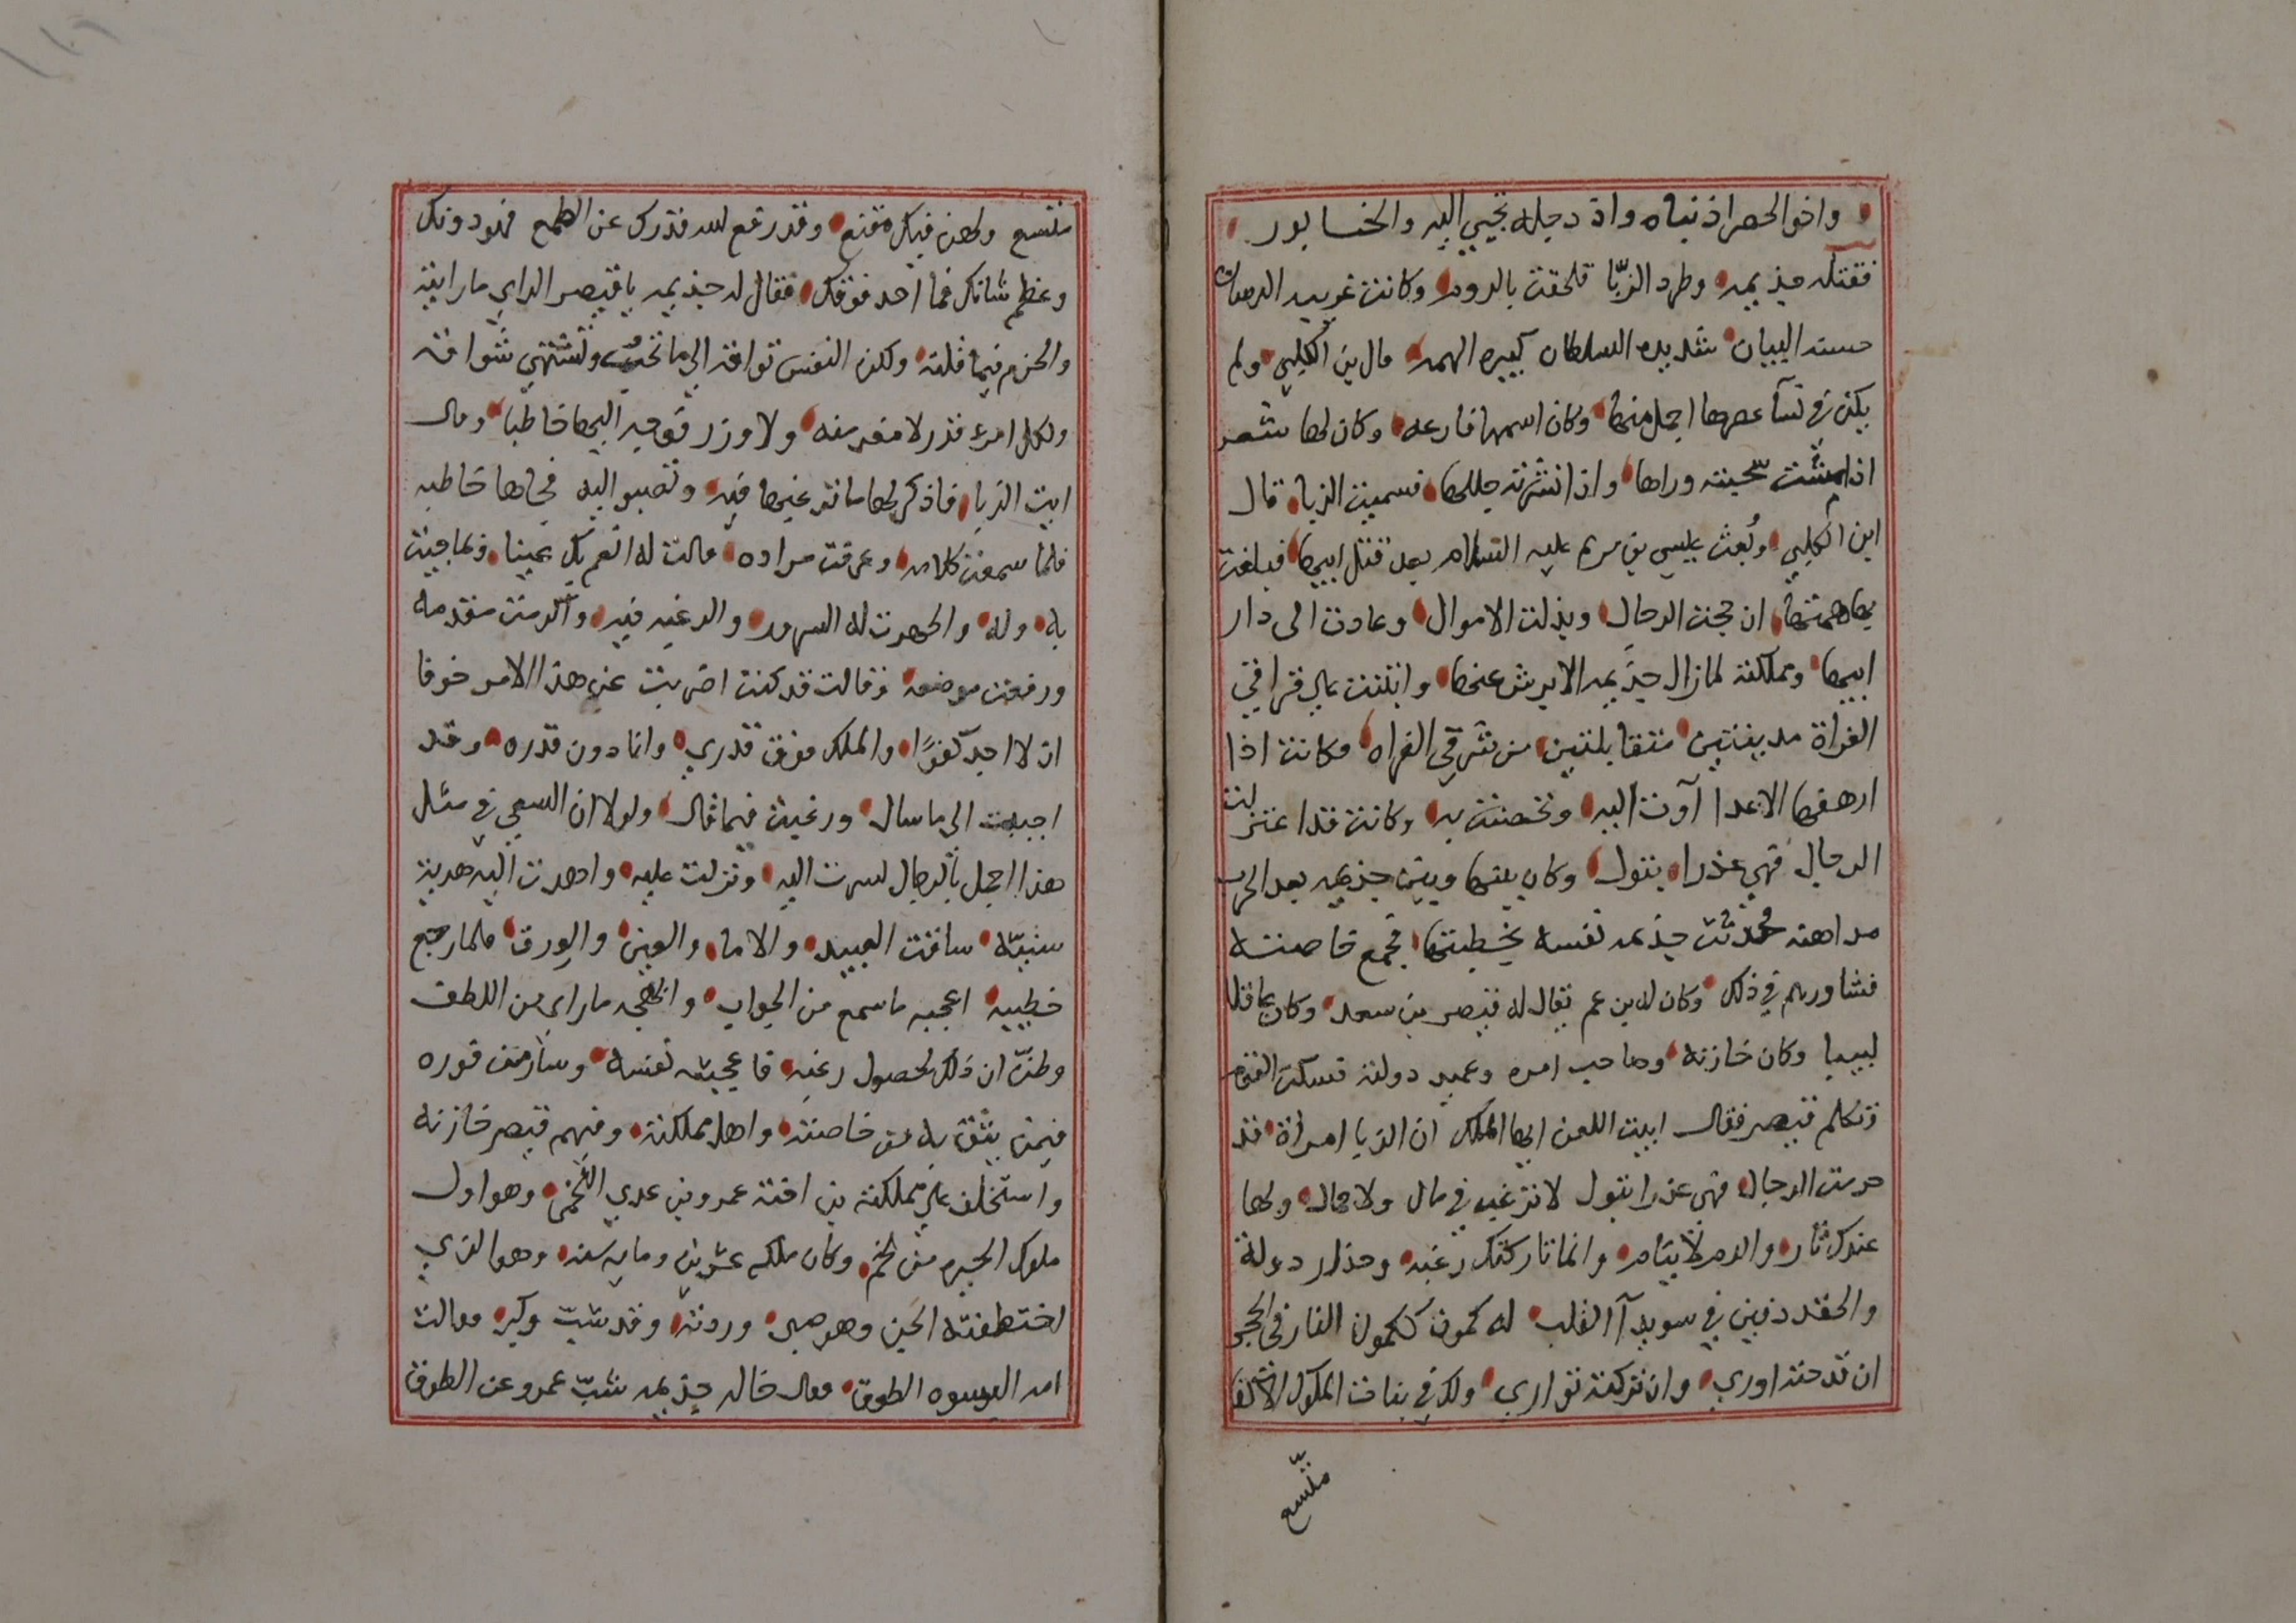 واخو الحصر اذ بناه واذ دجله تجبي اليه والخابور
فقتله جذيمه وطرد الزبّا فلحقت بالروم وكانت عربيه اللسان
حسنه البيان شديده السلطان كبيره الهمه قال بن الكلبي ولم
يكن في نسآ عصرها اجمل منها وكان اسمها فارعه وكان لها شعر
اذا مشت سحبته وراها واذا نشرته جللها فسميت الزبا قال
ابن الكلبي وبُعث عيسي بن مريم عليه السلام بعد قتل ابيها فبلغت
بها همتها ان جمعت الرجال وبذلت الاموال وعادت الى دار
ابيها ومملكته فازال جذيمه الابرش عنها وابتنت علي
الفراة مدينتين متقابلتين من شرقي الفراه وكانت اذا
ارهقها الاعدا آوت اليه وتحصنت به وكانت قد اعتزلت
الرجال فهي عذرا بتول وكان بينها وبين جذيمه بعد الحرب
مداهنه فحدثت جذيمه نفسه بخطبتها فجمع خاصته
فشاورهم في ذلك وكان له بن عم يقال له قيصر بن سعد وكان عاقلا
لبيبا وكان خازنه وصاحب امره وعميد دولته فسكت القوم
وتكلم قيصر فقال ابيت اللعن ايها الملك ان الزبا امراة قد
حرمت الرجال فهي عذرا بتول لا ترغب في مال ولا جمال ولها
عندك ثار والدم لا ينام وانما تاركتك رغبه وحذار دولة
والحقد دفين في سويدآ القلب له كمون ككمون النار في الحجر
ان قدحته اوري وان تركته تواري ولك في بنات الملوك الاكفا
متّسع
متسع ولهن فيك مقنع وقد رفع الله قدرك عن الطمع فيمن دونك
وعظم شانك فما احد فوقك فقال له جذيمه يا قيصر الراي ما رايته
والحزم فيما قلته ولكن النفس تواقه الي ما تحب وتشتهي شواقه
ولكل امرء قدر لا مفر منه ولا وزر فوجه اليها خاطبا وقال
ايت الزبا فاذكر لها ما ترغبها فيه وتصبوا اليه فجاها خاطبه
فلما سمعت كلامه وعرفت مراده قالت له انعم بك عينا وبما جيت
به وله واظهرت له السرور والرغبه فيه واكرمت مقدمه
ورفعت موضعه وقالت قد كنت اضربت عن هذا الامر خوفا
ان لا اجد كفوًا والملك فوق قدري وانا دون قدره وقد
اجبت الي ما سال ورغبت فيما قال ولولا ان السعي في مثل
هذا اجمل بالرجال لسرت اليه ونزلت عليه واهدت اليه هدية
سنيّه ساقت العبيد والاما والعين والورق فلما رجع
خطيبه اعجبه ما سمع من الجواب وابهجه ما راي من اللطف
وظنّ ان ذلك لحصول رغبه فاعجبته نفسه وسار من فوره
فيمن يثق به من خاصته واهل مملكته وفيهم قيصر خازنه
واستخلف علي مملكته بن اخته عمرو بن عدي اللخمي وهو اول
ملوك الحيره من لخم وكان ملكه عشرين ومايه سنه وهو الذي
اختطفته الجن وهو صبي وردته وقد شبّ وكبر فقالت
امه البسوه الطوق فقال خاله جذيمه شبّ عمرو عن الطوق